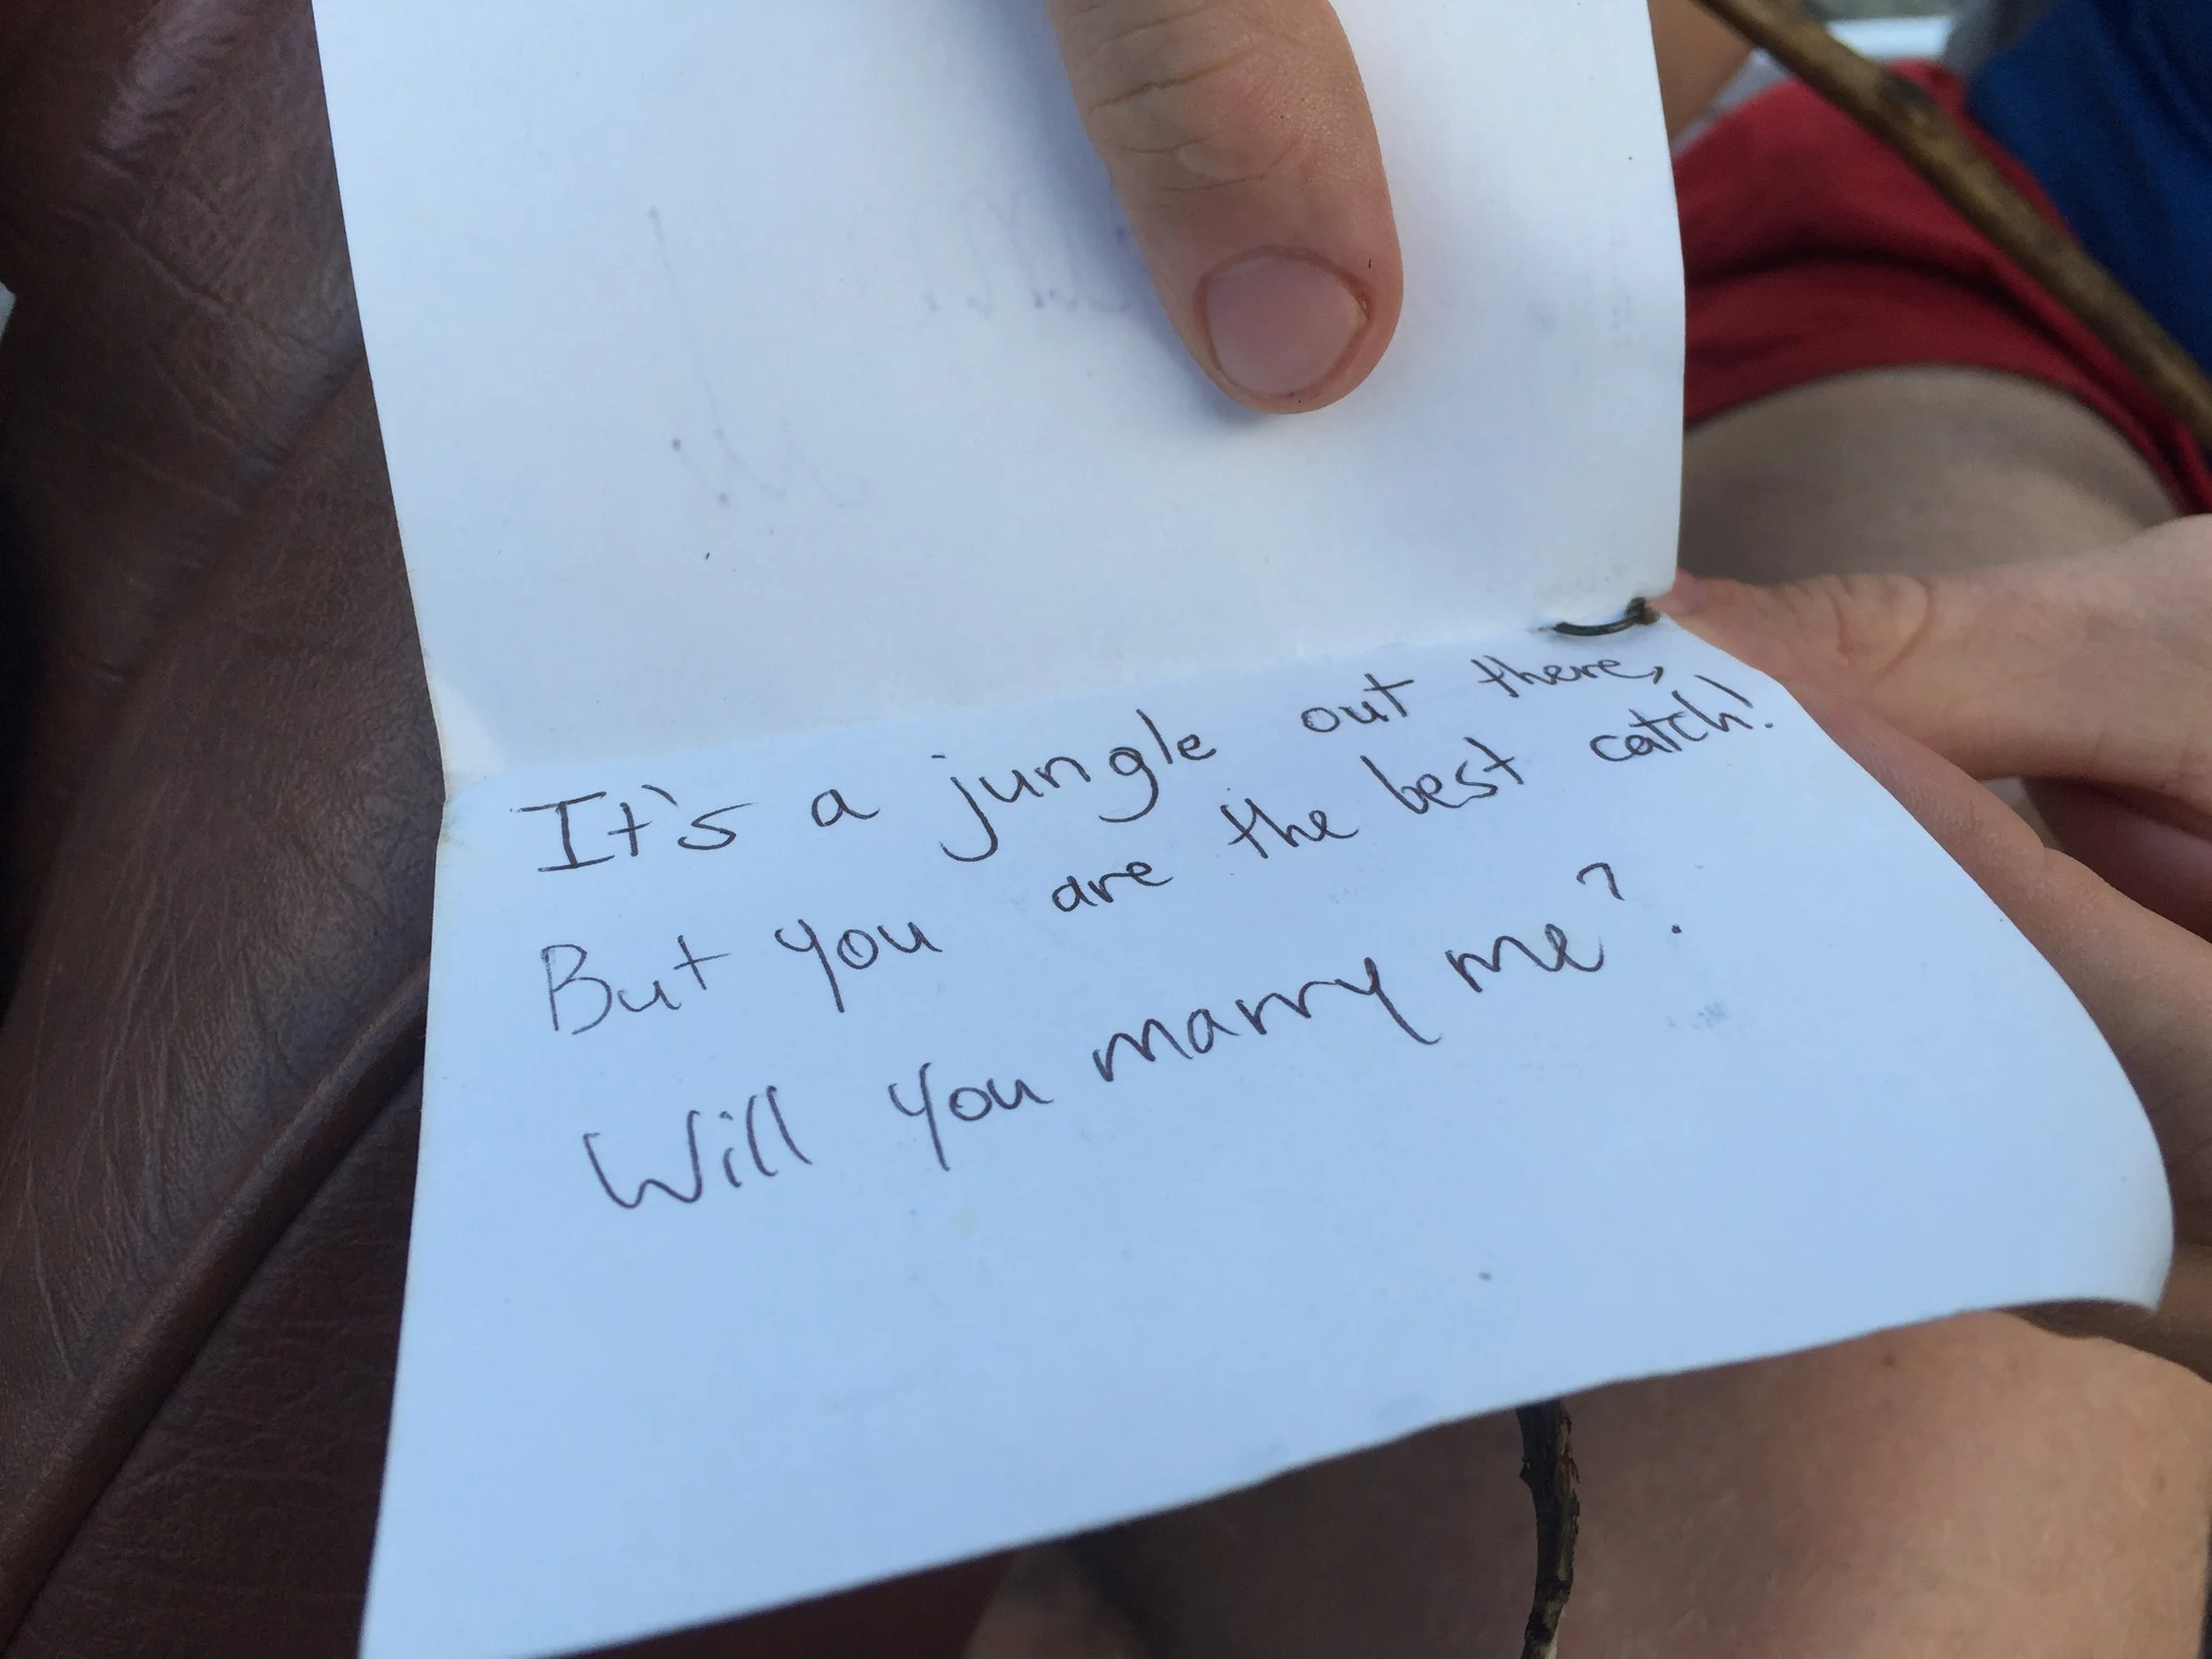 It's a jungle out there,
But you are the best catch!
Will you marry me?